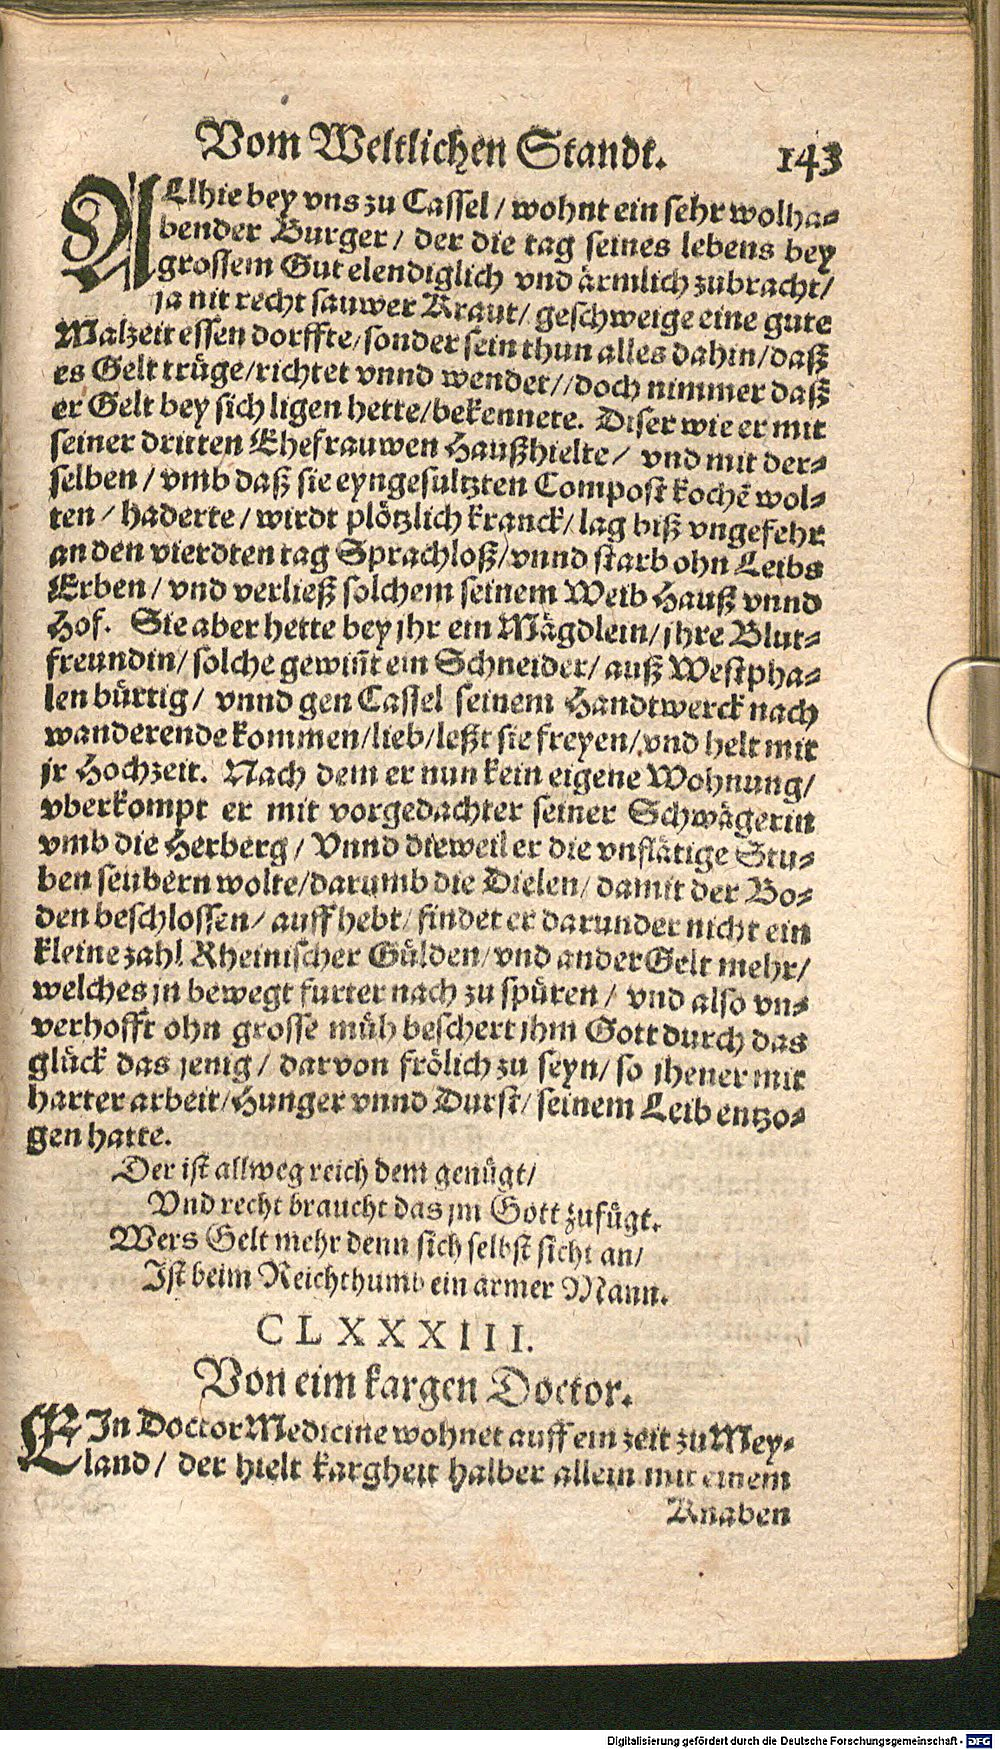 Vom Weltlichen Standt. 143
ALlhie bey vns zu Cassel / wohnt ein sehr wolha-
bender Burger / der die tag seines lebens bey
grossem Gut elendiglich vnd ärmlich zubracht /
ja nit recht sauwer Kraut / geschweige eine gute
Malzeit essen dorffte / sonder sein thun alles dahin / daß
es Gelt trüge / richtet vnnd wendet / / doch nimmer daß
er Gelt bey sich ligen hette / bekennete. Diser wie er mit
seiner dritten Ehefrauwen Haußhielte / vnd mit der-
selben / vmb daß sie eyngesultzten Compost kochē wol-
ten / haderte / wirdt plötzlich kranck / lag biß vngefehr
an den vierdten tag Sprachloß / vnnd starb ohn Leibs
Erben / vnd verließ solchem seinem Weib Hauß vnnd
Hof. Sie aber hette bey jhr ein Mägdlein / jhre Blut-
freundin / solche gewiñt ein Schneider / auß Westpha-
len bürtig / vnnd gen Cassel seinem Handtwerck nach
wanderende kommen / lieb / leßt sie freyen / vnd helt mit
jr Hochzeit. Nach dem er nun kein eigene Wohnung /
vberkompt er mit vorgedachter seiner Schwägerin
vmb die Herberg / Vnnd dieweil er die vnflätige Stu-
ben seubern wolte / darumb die Dielen / damit der Bo-
den beschlossen / auff hebt / findet er darunder nicht ein
kleine zahl Rheinischer Gülden / vnd ander Gelt mehr /
welches jn bewegt furter nach zu spüren / vnd also vn-
verhofft ohn grosse müh beschert jhm Gott durch das
glück das jenig / darvon frölich zu seyn / so jhener mit
harter arbeit / Hunger vnnd Durst / seinem Leib entzo-
gen hatte.
Der ist allweg reich dem genügt /
Vnd recht braucht das jm Gott zufügt.
Wers Gelt mehr denn sich selbst sicht an /
Ist beim Reichthumb ein armer Mann.
CLXXXIII.
Von eim kargen Doctor.
EIn Doctor Medicine wohnet auff ein zeit zu Mey-
land / der hielt kargheit halber allein mit einem
Knaben
Digitalisierung gefördert durch die Deutsche Forschungsgemeinschaft - DFG